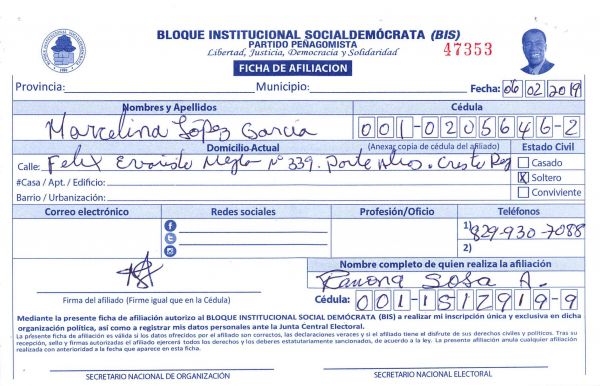 BLOQUE INSTITUCIONAL SOCIALDEMÓCRATA (BIS)
PARTIDO PEÑAGOMISTA
Libertad, Justicia, Democracia y Solidaridad
47353
FICHA DE AFILIACION
Provincia: Municipio: Fecha: 06 02 2019
Nombres y Apellidos Cédula
Marcelina López García 001-0205646-2
Domicilio Actual (Anexar copia de cédula del afiliado) Estado Civil
Calle: Felix Evaristo Mejia Nº 339. Parte Atras. Cristo Rey Casado
#Casa / Apt. / Edificio: X Soltero
Barrio / Urbanización: Conviviente
Correo electrónico Redes sociales Profesión/Oficio Teléfonos
1) 829-930-7088
2)
Nombre completo de quien realiza la afiliación
Ramona Sosa A.
Firma del afiliado (Firme igual que en la Cédula) Cédula: 001-1512919-9
Mediante la presente ficha de afiliación autorizo al BLOQUE INSTITUCIONAL SOCIAL DEMÓCRATA (BIS) a realizar mi inscripción única y exclusiva en dicha
organización política, así como a registrar mis datos personales ante la Junta Central Electoral.
La présente ficha de afiliación es válida si los datos ofrecidos por el afiliado son correctos, las declaraciones veraces y si el afiliado tiene el disfrute de sus derechos civiles y políticos. Tras su
recepción, sello y firmas autorizadas el afiliado ejercerá todos los derechos y los deberes estatutariamente sancionados, de acuerdo a la ley. La presente afiliación anula cualquier afiliación
realizada con anterioridad a la fecha que aparece en esta ficha.
SECRETARIO NACIONAL DE ORGANIZACIÓN SECRETARIO NACIONAL ELECTORAL